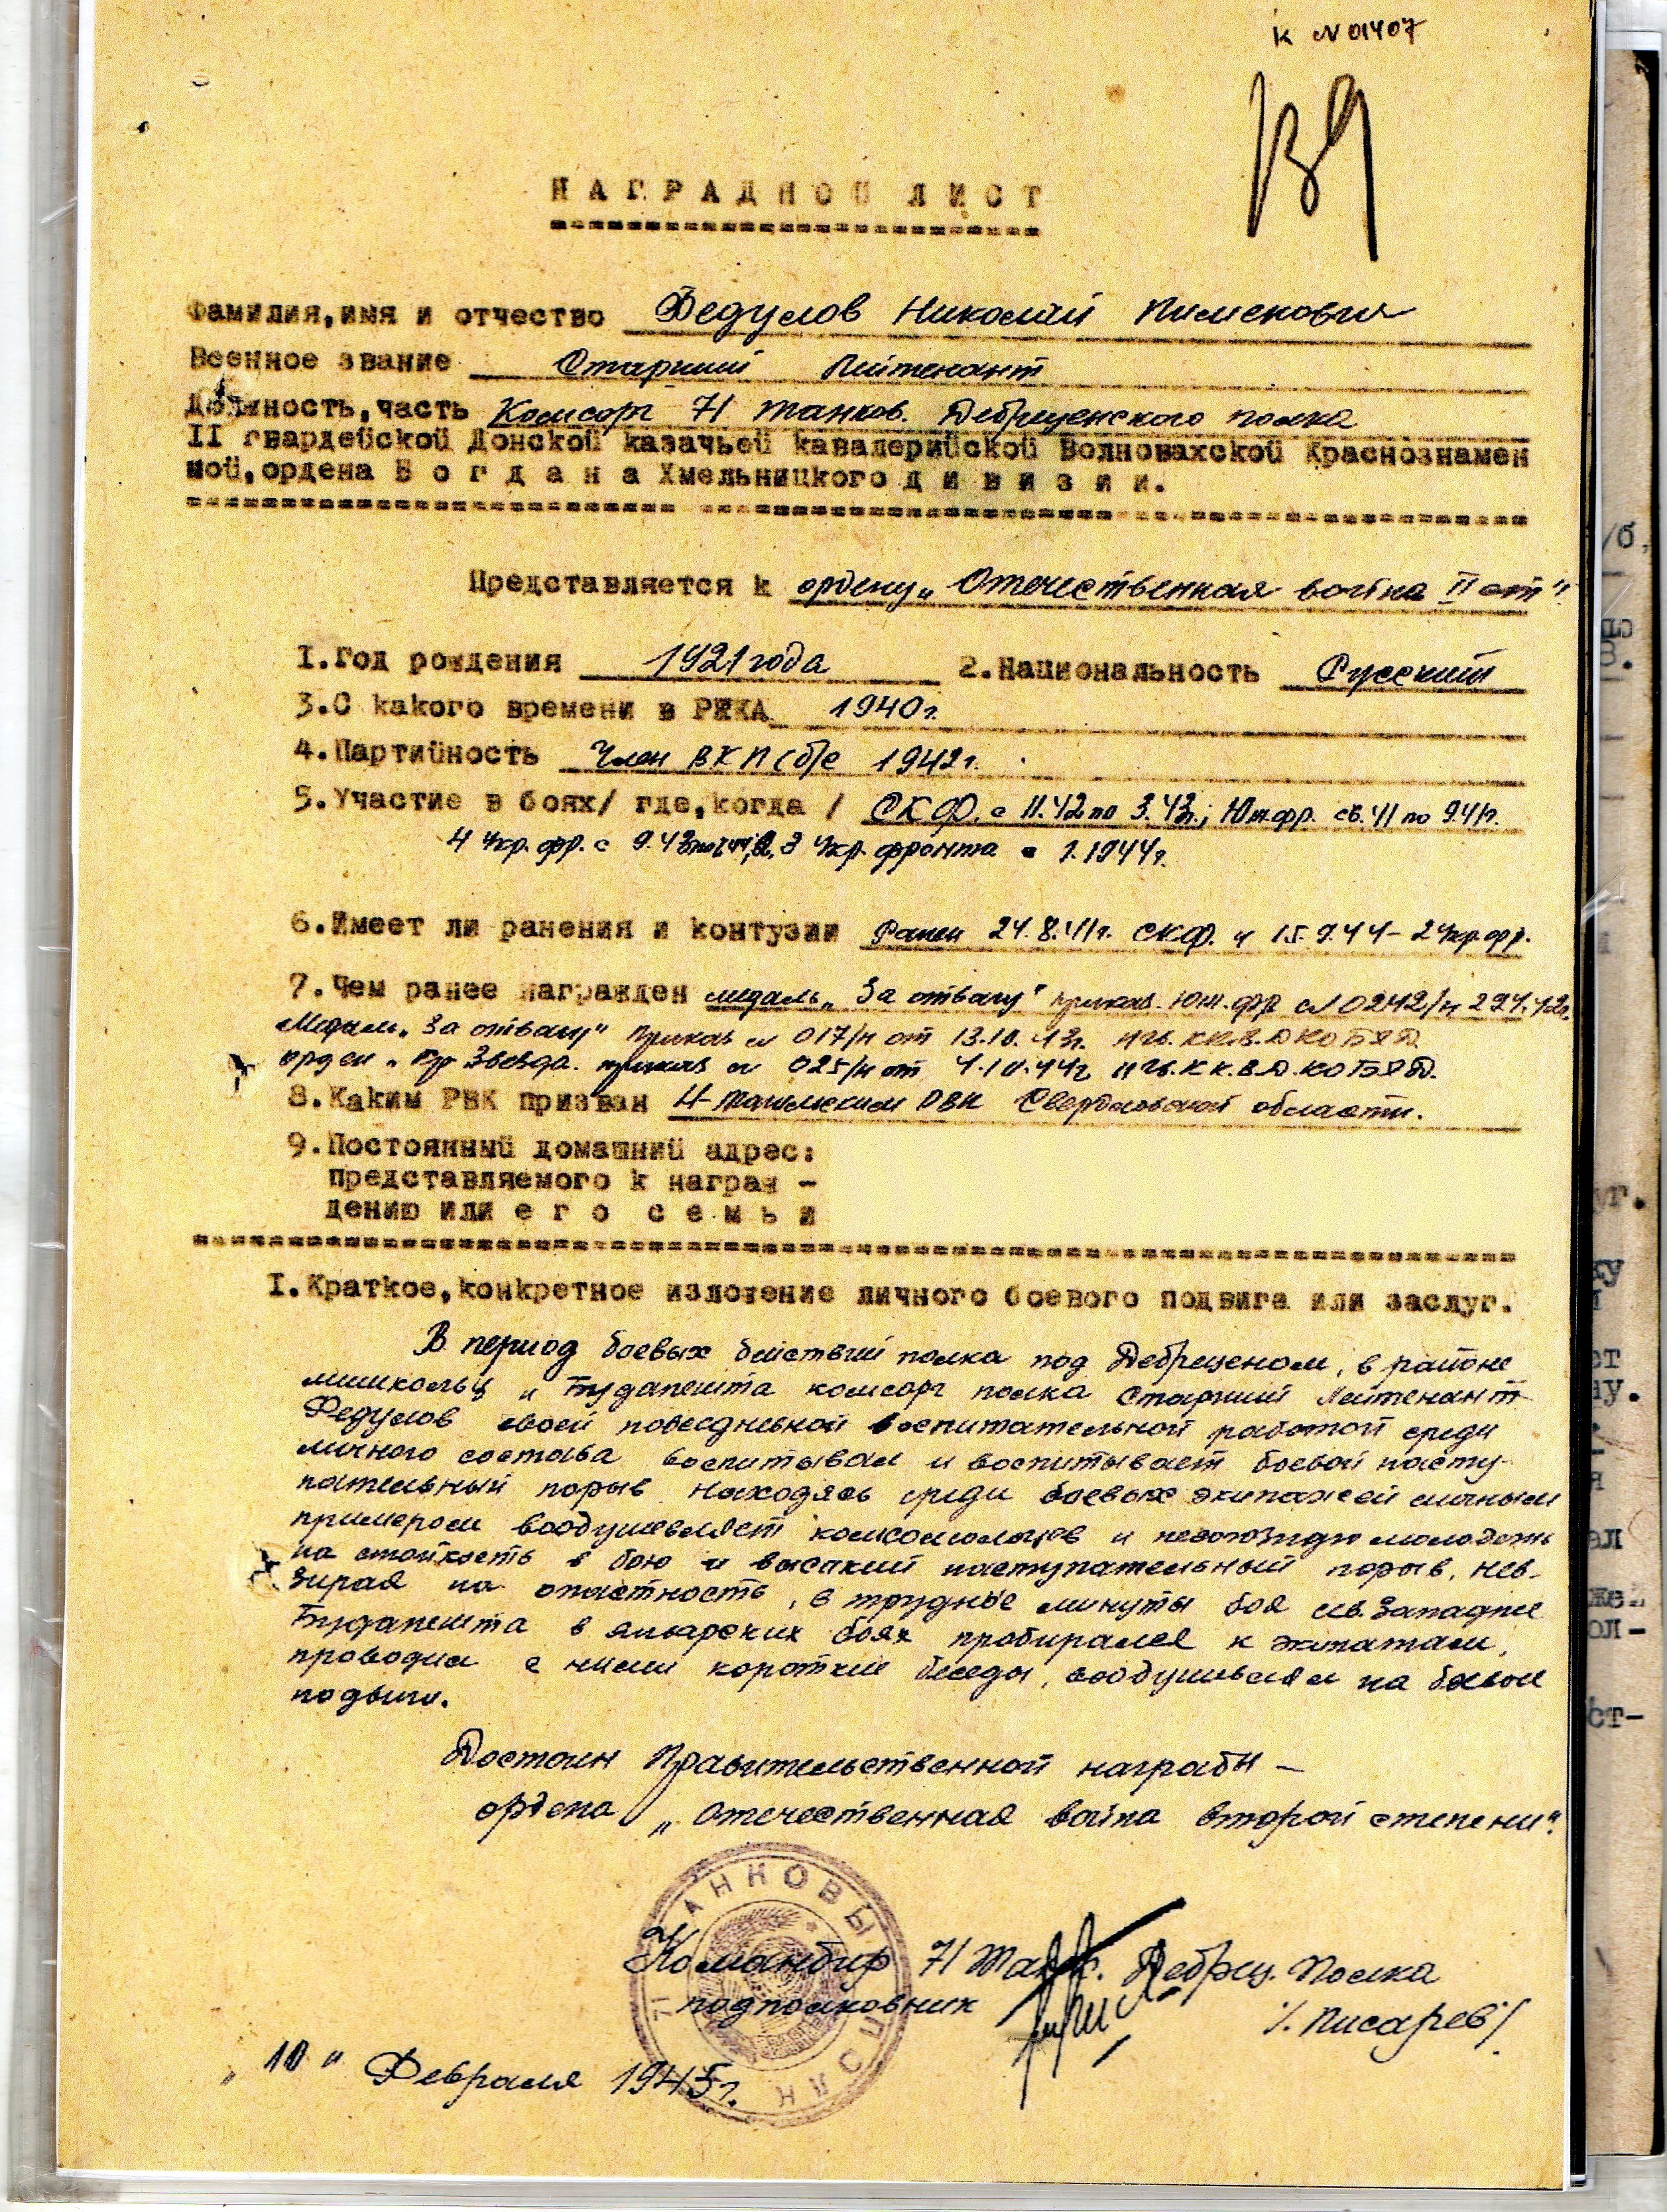 к №01407
НАГРАДНОЙ ЛИСТ
Фамилия,имя и отчество Федулов Николай Пименович
Военное звание Старший Лейтенант
Должность,часть Комсорг 71 танков. Дебреценского полка
II гвардейской Донской казачьей кавалерийской Волновахской Краснознамен
ной,ордена Богдана Хмельницкого дивизии.
Представляется к ордену „Отечественная война II ст"
I.Год рождения 1921 года 2.Национальность Русский
3.С какого времени в РККА 1940г.
4.Партийность Член ВКП(б) с 1942г.
5.Участие в боях/ где,когда / СКФ. с 11.42 по 3.43г.; Юж.фр. с 6.41 по 9.41г.
4 Укр. фр. с 9.43 2, 3 Укр. фронта 1944г.
6.Имеет ли ранения и контузии Ранен 24.8.41г. СКФ. и 15.9.44 - 2 Укр. фр.
7.Чем ранее награжден медаль „За отвагу" приказ. Юж. фр №0242/н
Медаль „За отвагу" приказ № 017/н от 13.10.43г.
орден „Кр Звезда. приказ № 025/н от 4.10.44г
8.Каким РВК призван Н-Тагильским РВК Свердловской области.
9.Постоянный домашний адрес:
представляемого к награж -
дению или его семьи
I.Краткое,конкретное изложение личного боевого подвига или заслуг.
В период боевых действий полка под Дебреценом, в районе
мишкольц и Будапешта комсорг полка Старший Лейтенант
Федулов своей повседневной воспитательной работой среди
личного состава воспитывал и воспитывает боевой насту-
пательный порыв. Находясь среди боевых экипажей личным
примером воодушевляет комсомольцев и несоюзную молодежь
на стойкость в бою и высокий наступательный порыв, нев-
зирая на опастность, в трудные минуты боя св. Западнее
Будапешта в январских боях пробирался к экипажам,
проводил с ними короткие беседы, воодушевлял на боевые
подвиги.
Достоин Правительственной награды -
ордена „Отечественная война второй степени".
71 ТАНКОВЫЙ ПОЛК
Командир 71 Танк. Дебрец. Полка
подполковник /. Писарев/
„10" Февраля 1945г.